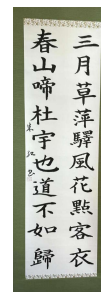 三月草萍驛風花點客衣
春山啼杜宇也道不如歸